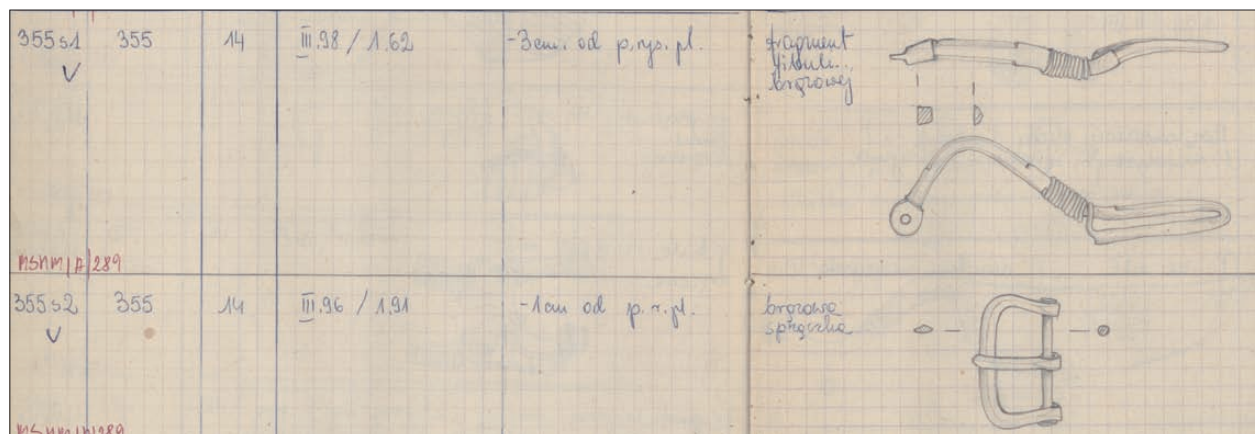 355s1 355 14 III.98 / 1.62 -3cm. od p. rys. pl. fragment
fibuli...
brązowej
V
MSNM/A/289
355s2 355 14 III.96 / 1.91 -1cm od p. r. pl. brązowa
sprzączka
V